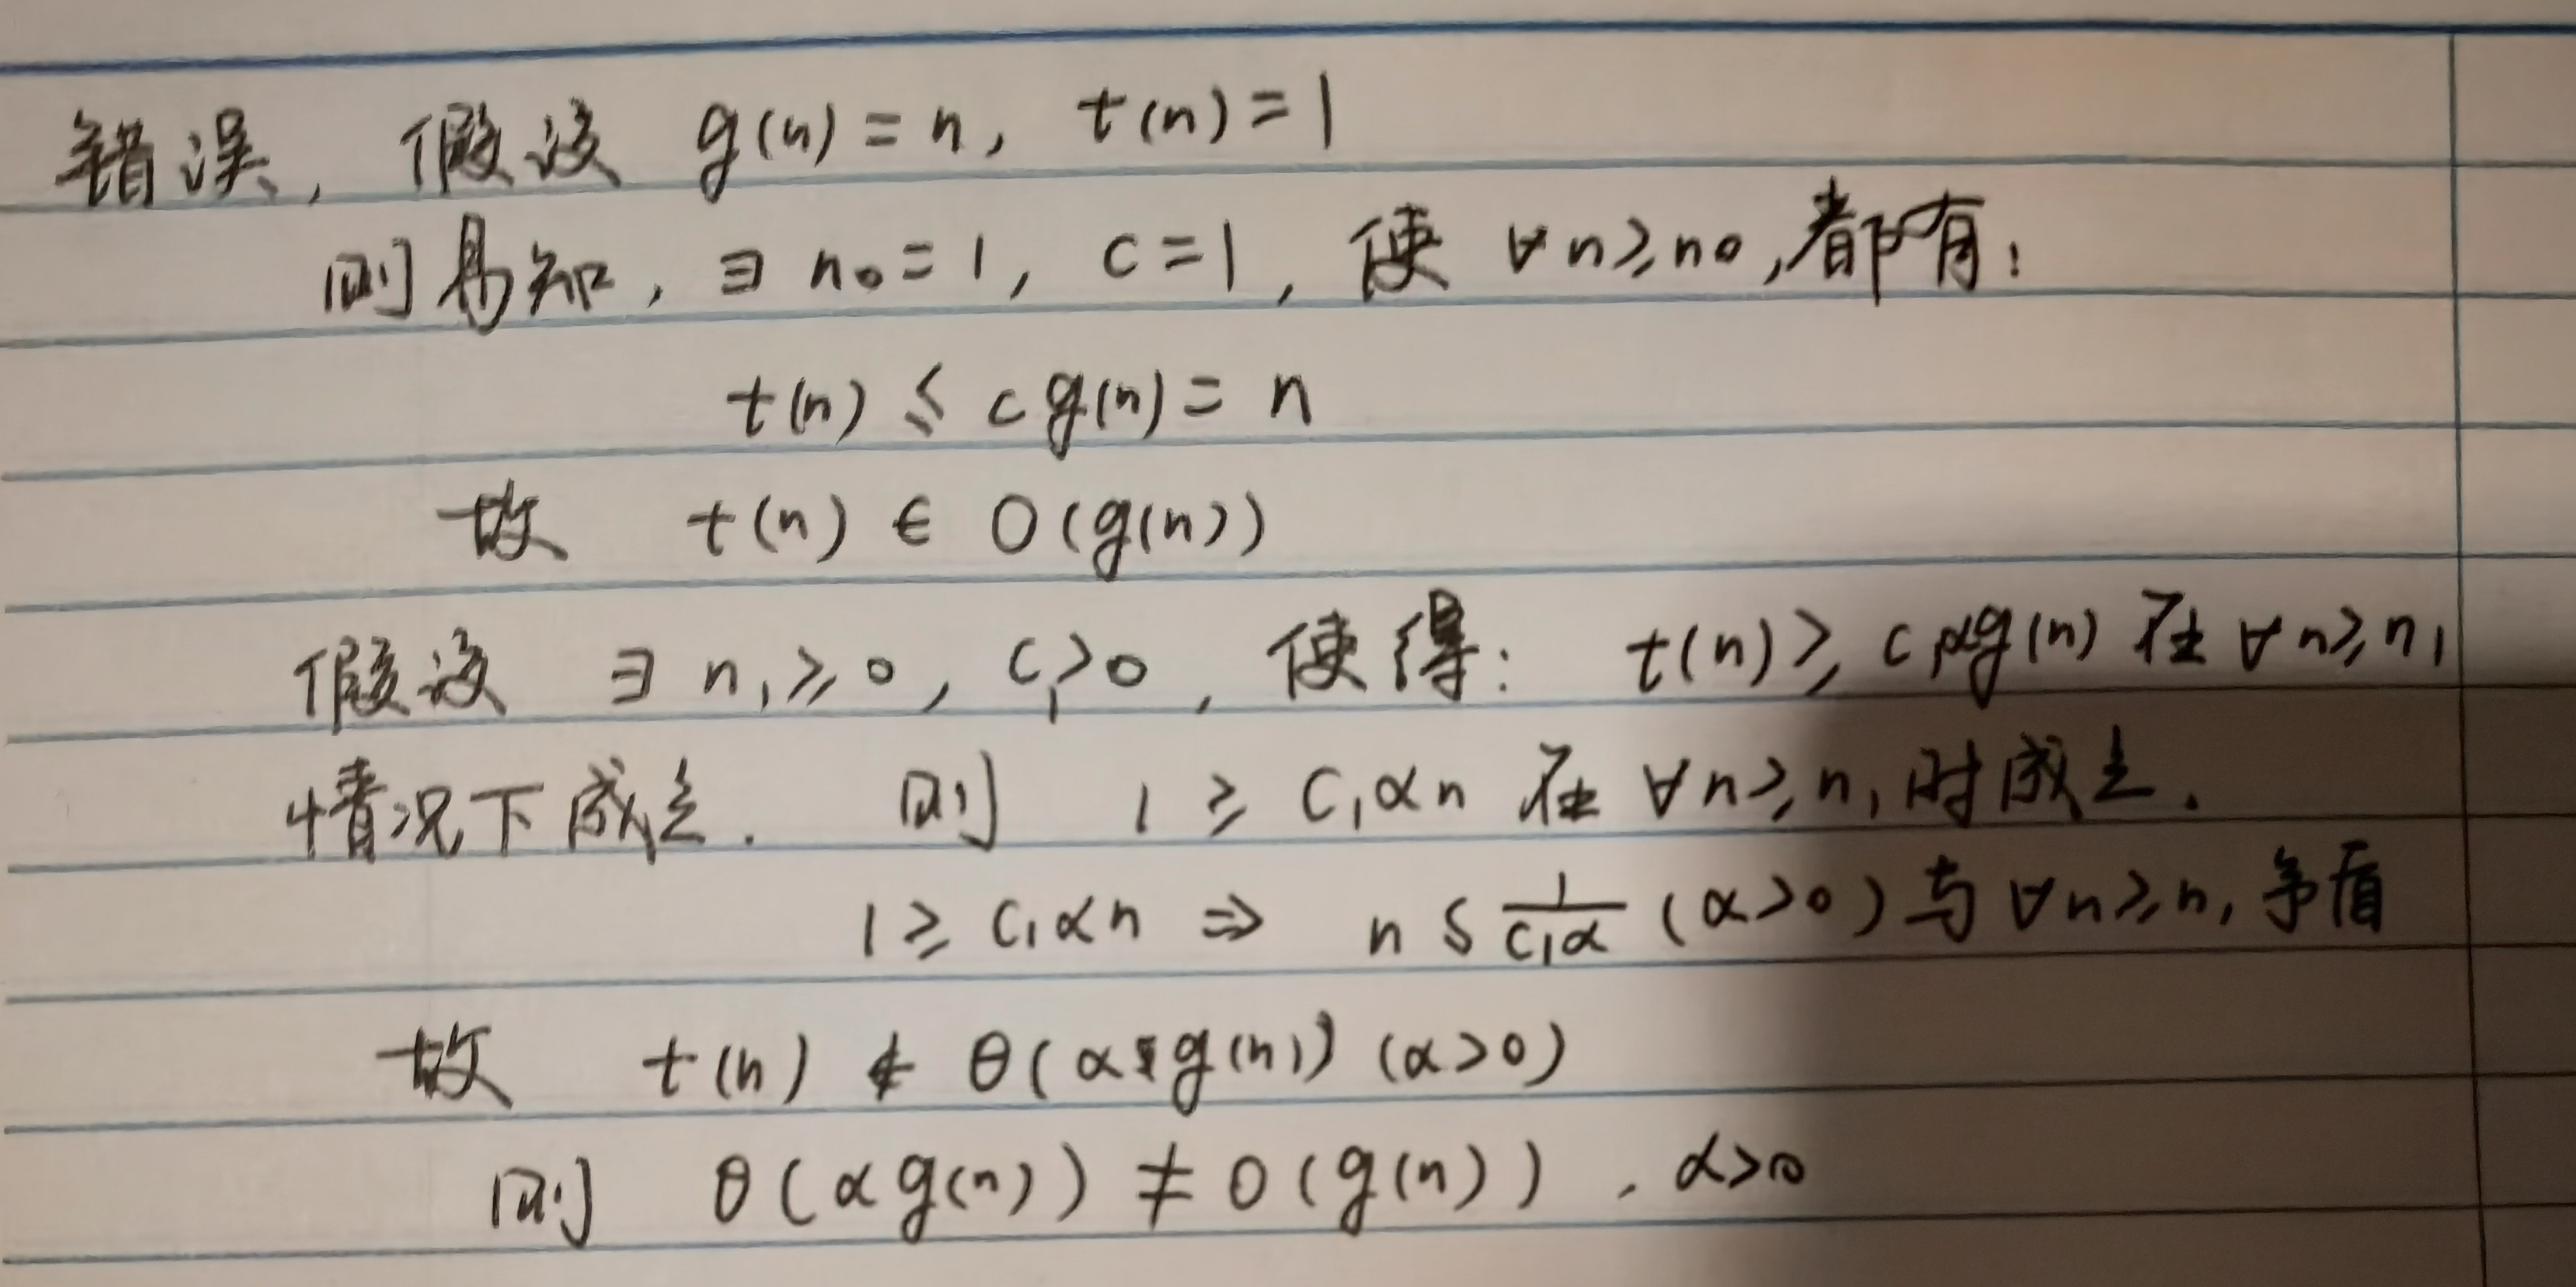 错误, 假设 g(n) = n, t(n) = 1
则易知, ∃ n₀ = 1, c = 1, 使 ∀n≥n₀, 都有:
t(n) ≤ c g(n) = n
故 t(n) ∈ O(g(n))
假设 ∃ n₁ ≥ 0, c₁>0, 使得: t(n) ≥ c₁αg(n) 在 ∀n≥n₁
情况下成立. 则 1 ≥ c₁αn 在 ∀n≥n₁时成立.
1 ≥ c₁αn ⇒ n ≤ 1/(c₁α) (α>0) 与 ∀n≥n₁矛盾
故 t(n) ∉ θ(αg(n)) (α>0)
则 θ(αg(n)) ≠ O(g(n)), α>0